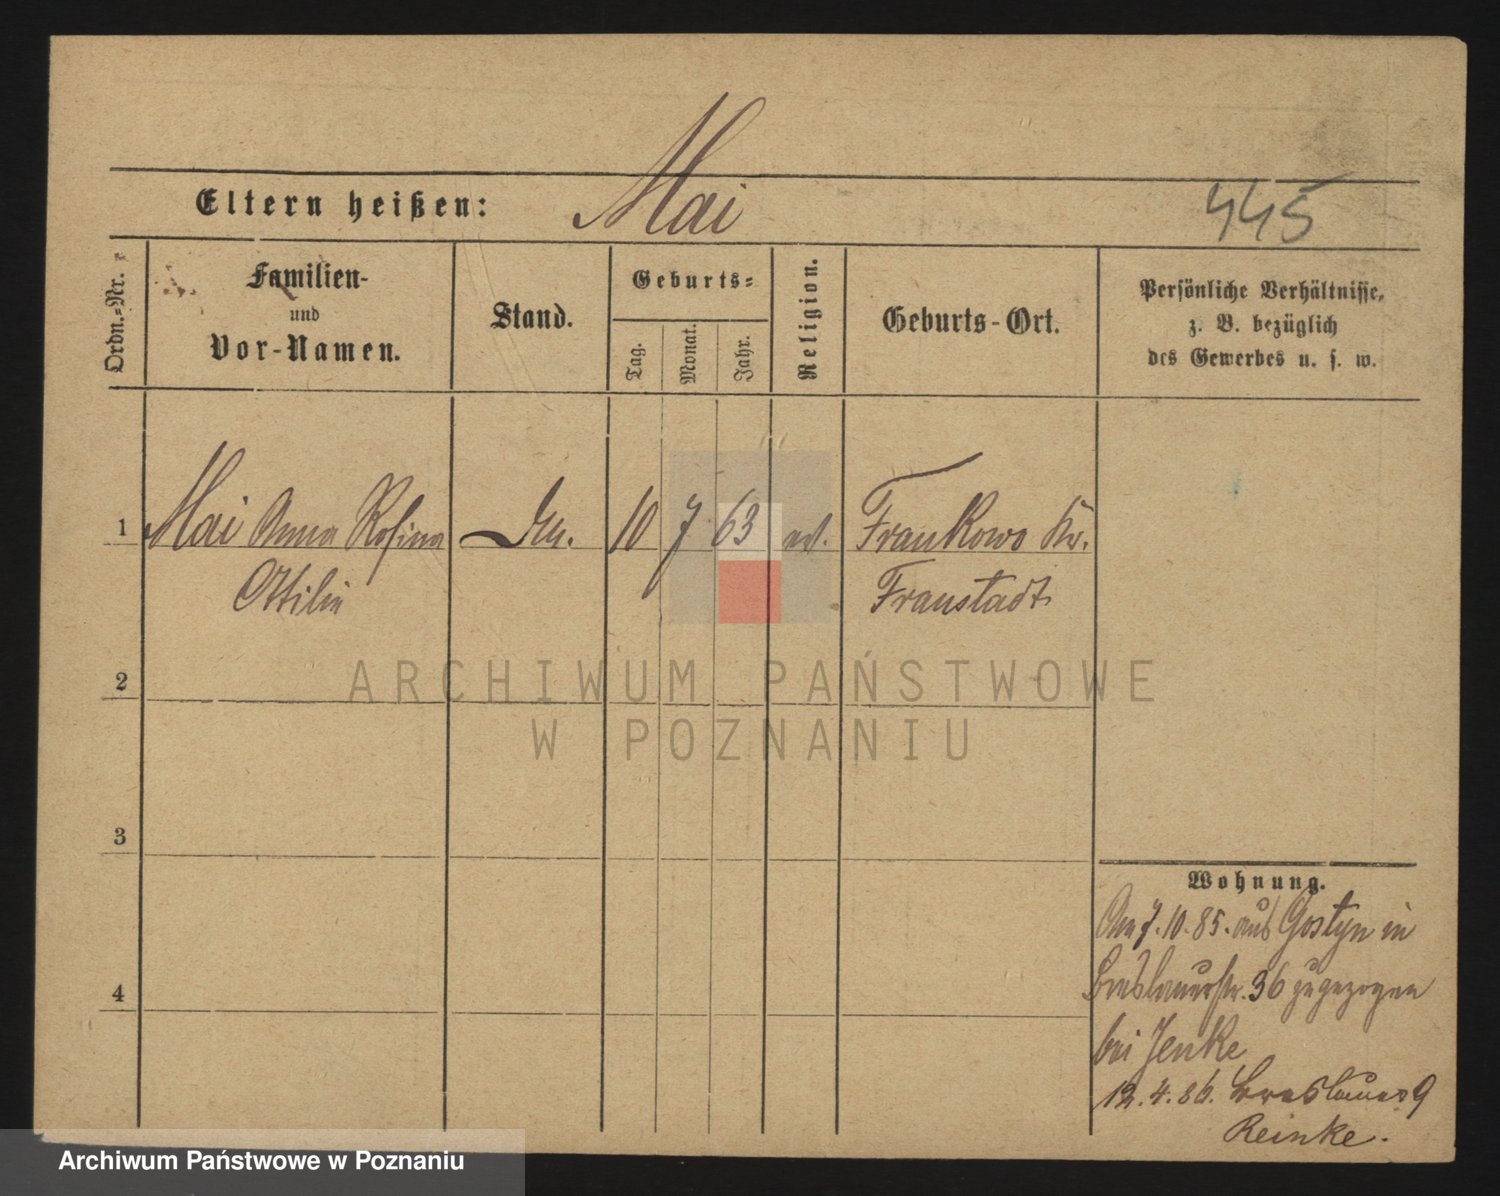 Eltern heißen: Mai 445
Ordn.-Nr.
Familien-
und
Vor-Namen.
Stand.
Geburts-
Tag.
Monat.
Jahr.
Religion.
Geburts-Ort.
Persönliche Verhältnisse,
z. B. bezüglich
des Gewerbes u. s. w.
1 Mai Anna Rosina 10 7 63 ev. Frankowo Kr.
Ottilie Fraustadt
2
3
4
Wohnung.
Am 7.10.85. aus Gostyn in
Breslauerstr. 36 zugezogen
bei Jenke
12.4.86. Breslauer 9
Reinke.
ARCHIWUM PAŃSTWOWE
W POZNANIU
Archiwum Państwowe w Poznaniu